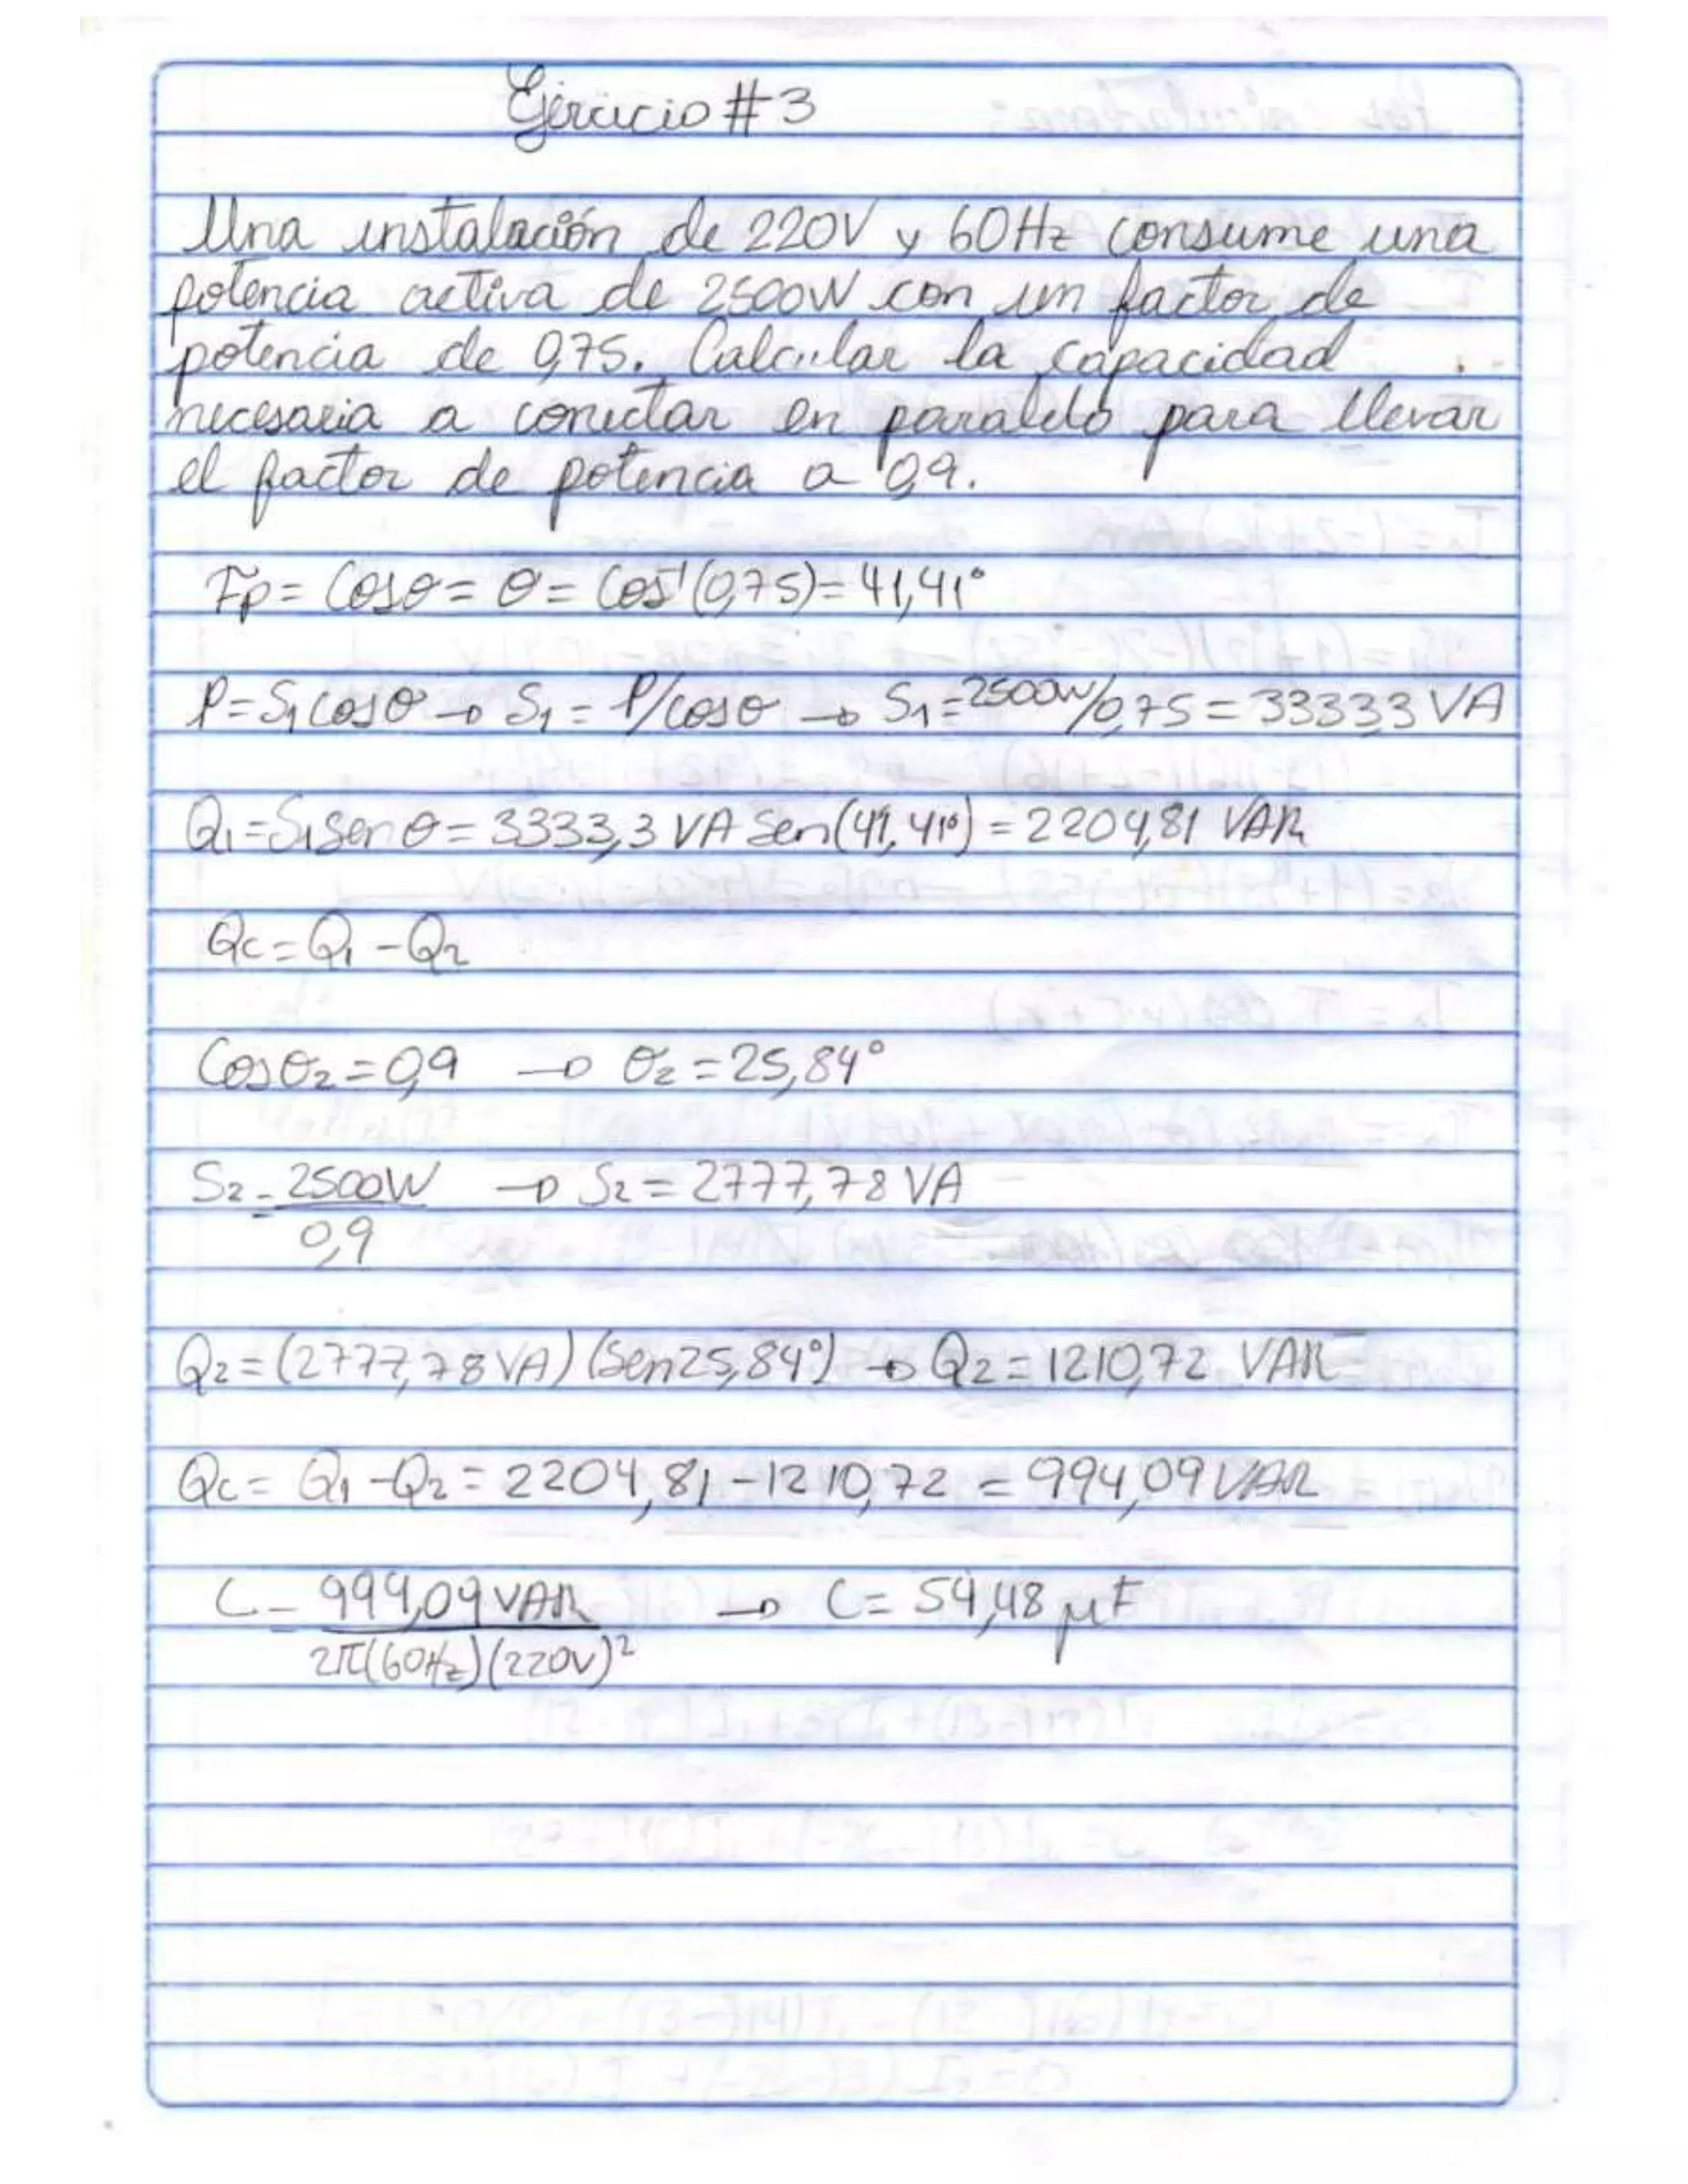 Ejercicio #3
Una instalación de 220V y 60Hz consume una
potencia activa de 2500W con un factor de
potencia de 0,75. Calcular la capacidad
necesaria a conectar en paralelo para llevar
el factor de potencia a 0,9.
Fp = Cosθ = θ = Cos⁻¹(0,75) = 41,41°
P = S₁ cosθ → S₁ = P/cosθ → S₁ = 2500W/0,75 = 3333,3 VA
Q₁ = S₁ Sen θ = 3333,3 VA Sen(41,41°) = 2204,81 VAR
Qc = Q₁ - Q₂
Cosθ₂ = 0,9 → θ₂ = 25,84°
S₂ = 2500W → S₂ = 2777,78 VA
0,9
Q₂ = (2777,78 VA) (Sen 25,84°) → Q₂ = 1210,72 VAR
Qc = Q₁ - Q₂ = 2204,81 - 1210,72 = 994,09 VAR
C = 994,09 VAR → C = 54,48 μF
2π(60Hz)(220V)²